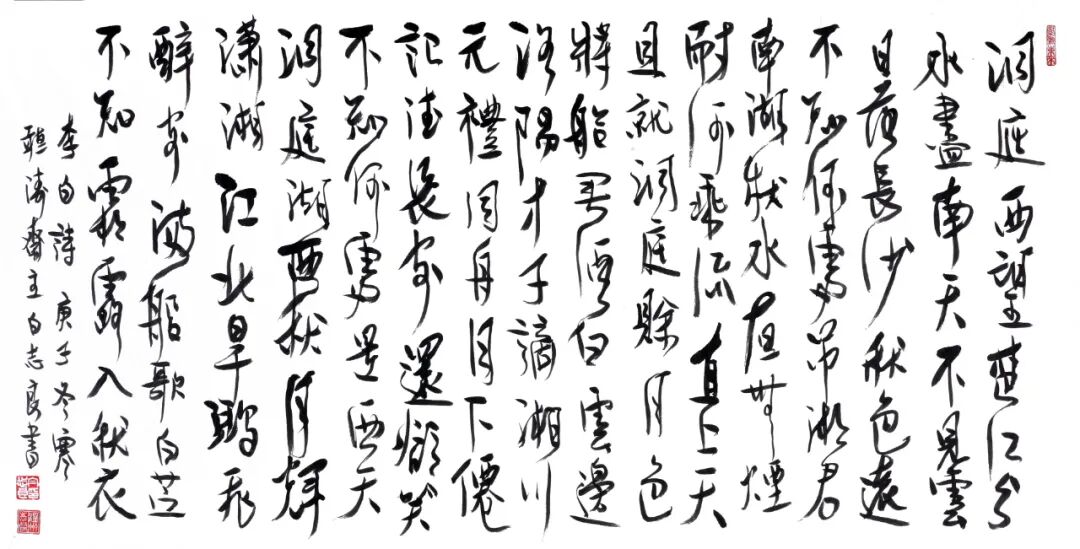 洞庭西望楚江分
水盡南天不見雲
日落長沙秋色遠
不知何處吊湘君
南湖秋水夜無煙
耐何乘流直上天
且就洞庭賒月色
將船買酒白雲邊
洛陽才子謫湘川
元禮同舟月下僊
記得長安還欲笑
不知何處是西天
洞庭湖西秋月輝
瀟湘江北早鴻飛
醉客滿船歌白苧
不知霜露入秋衣
李白詩 庚子冬寒
濤齋主白志良書